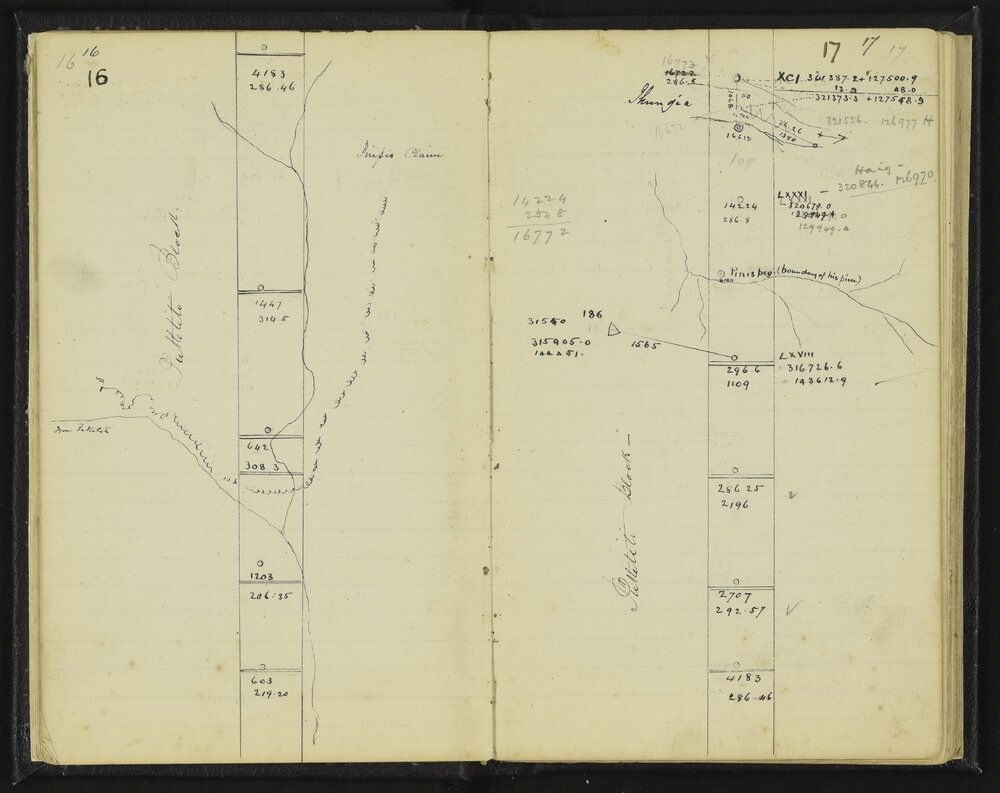 16 16
16
4183
286.46
Piripis Claim
Puketiti Block.
1447
314.5
From Puketiti
642
308 3
1203
206.35
603
219.20
17 17 17
16773
16722
286.8
XCI 341387.2 + 127500.9
13.9 48.0
321373.3 + 127548.9
321556. 126977 H
16672
16613
109
Haig
320844. 126970
LXXXI
14224
286.8
320679.0
129949.4
14224
2548
16772
Piris peg. (boundary of his piece)
186
31540
315405.0
144451.
1565
LXVIII
316726.6
143612.9
296.6
1109
286 25
2196
Puketiti Block
2707
292.57
4183
286.46